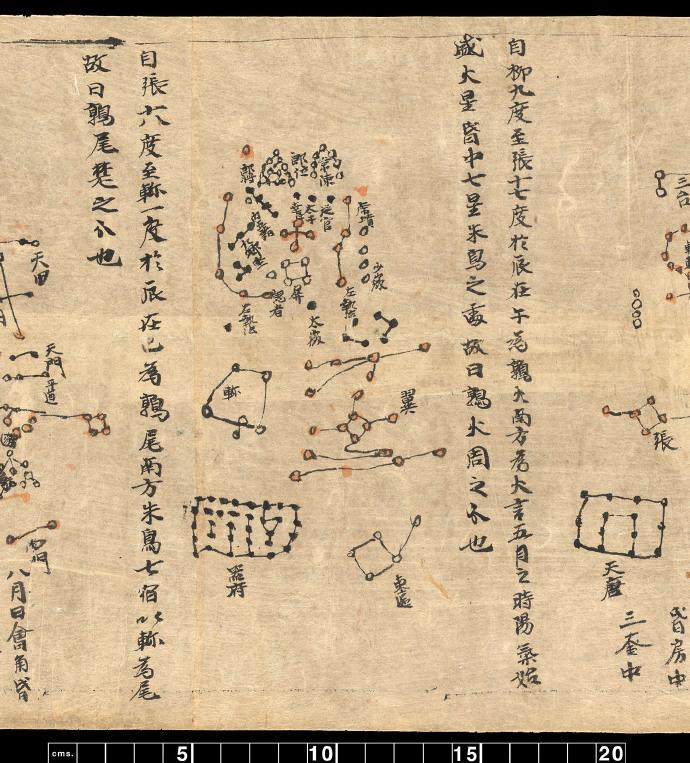 三台
張
天庿
房中
奎中
自柳九度至張十七度於辰在午為鶉火南方為火言五月之時陽氣始
盛火星昏中七星朱鳥之處故曰鶉火周之分也
常陳
郎位
郎將
虎賁
從官
太子
少微
左執法
屏
謁者
右執法
太微
翼
軫
東區
器府
自張十八度至軫一度於辰在巳為鶉尾南方朱鳥七宿以軫為尾
故曰鶉尾楚之分也
天田
天門
平道
南門
八月日會角昏
cms. 5 10 15 20